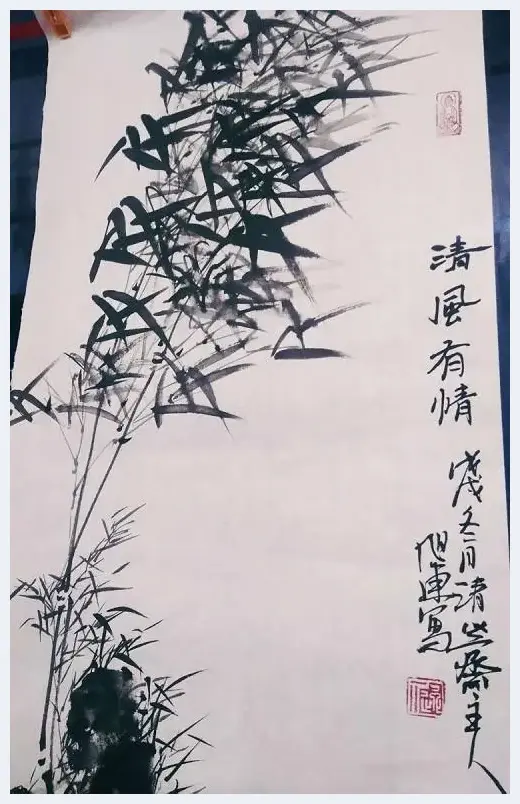 清風有情
戊戌冬月清齋主人
旭東寫